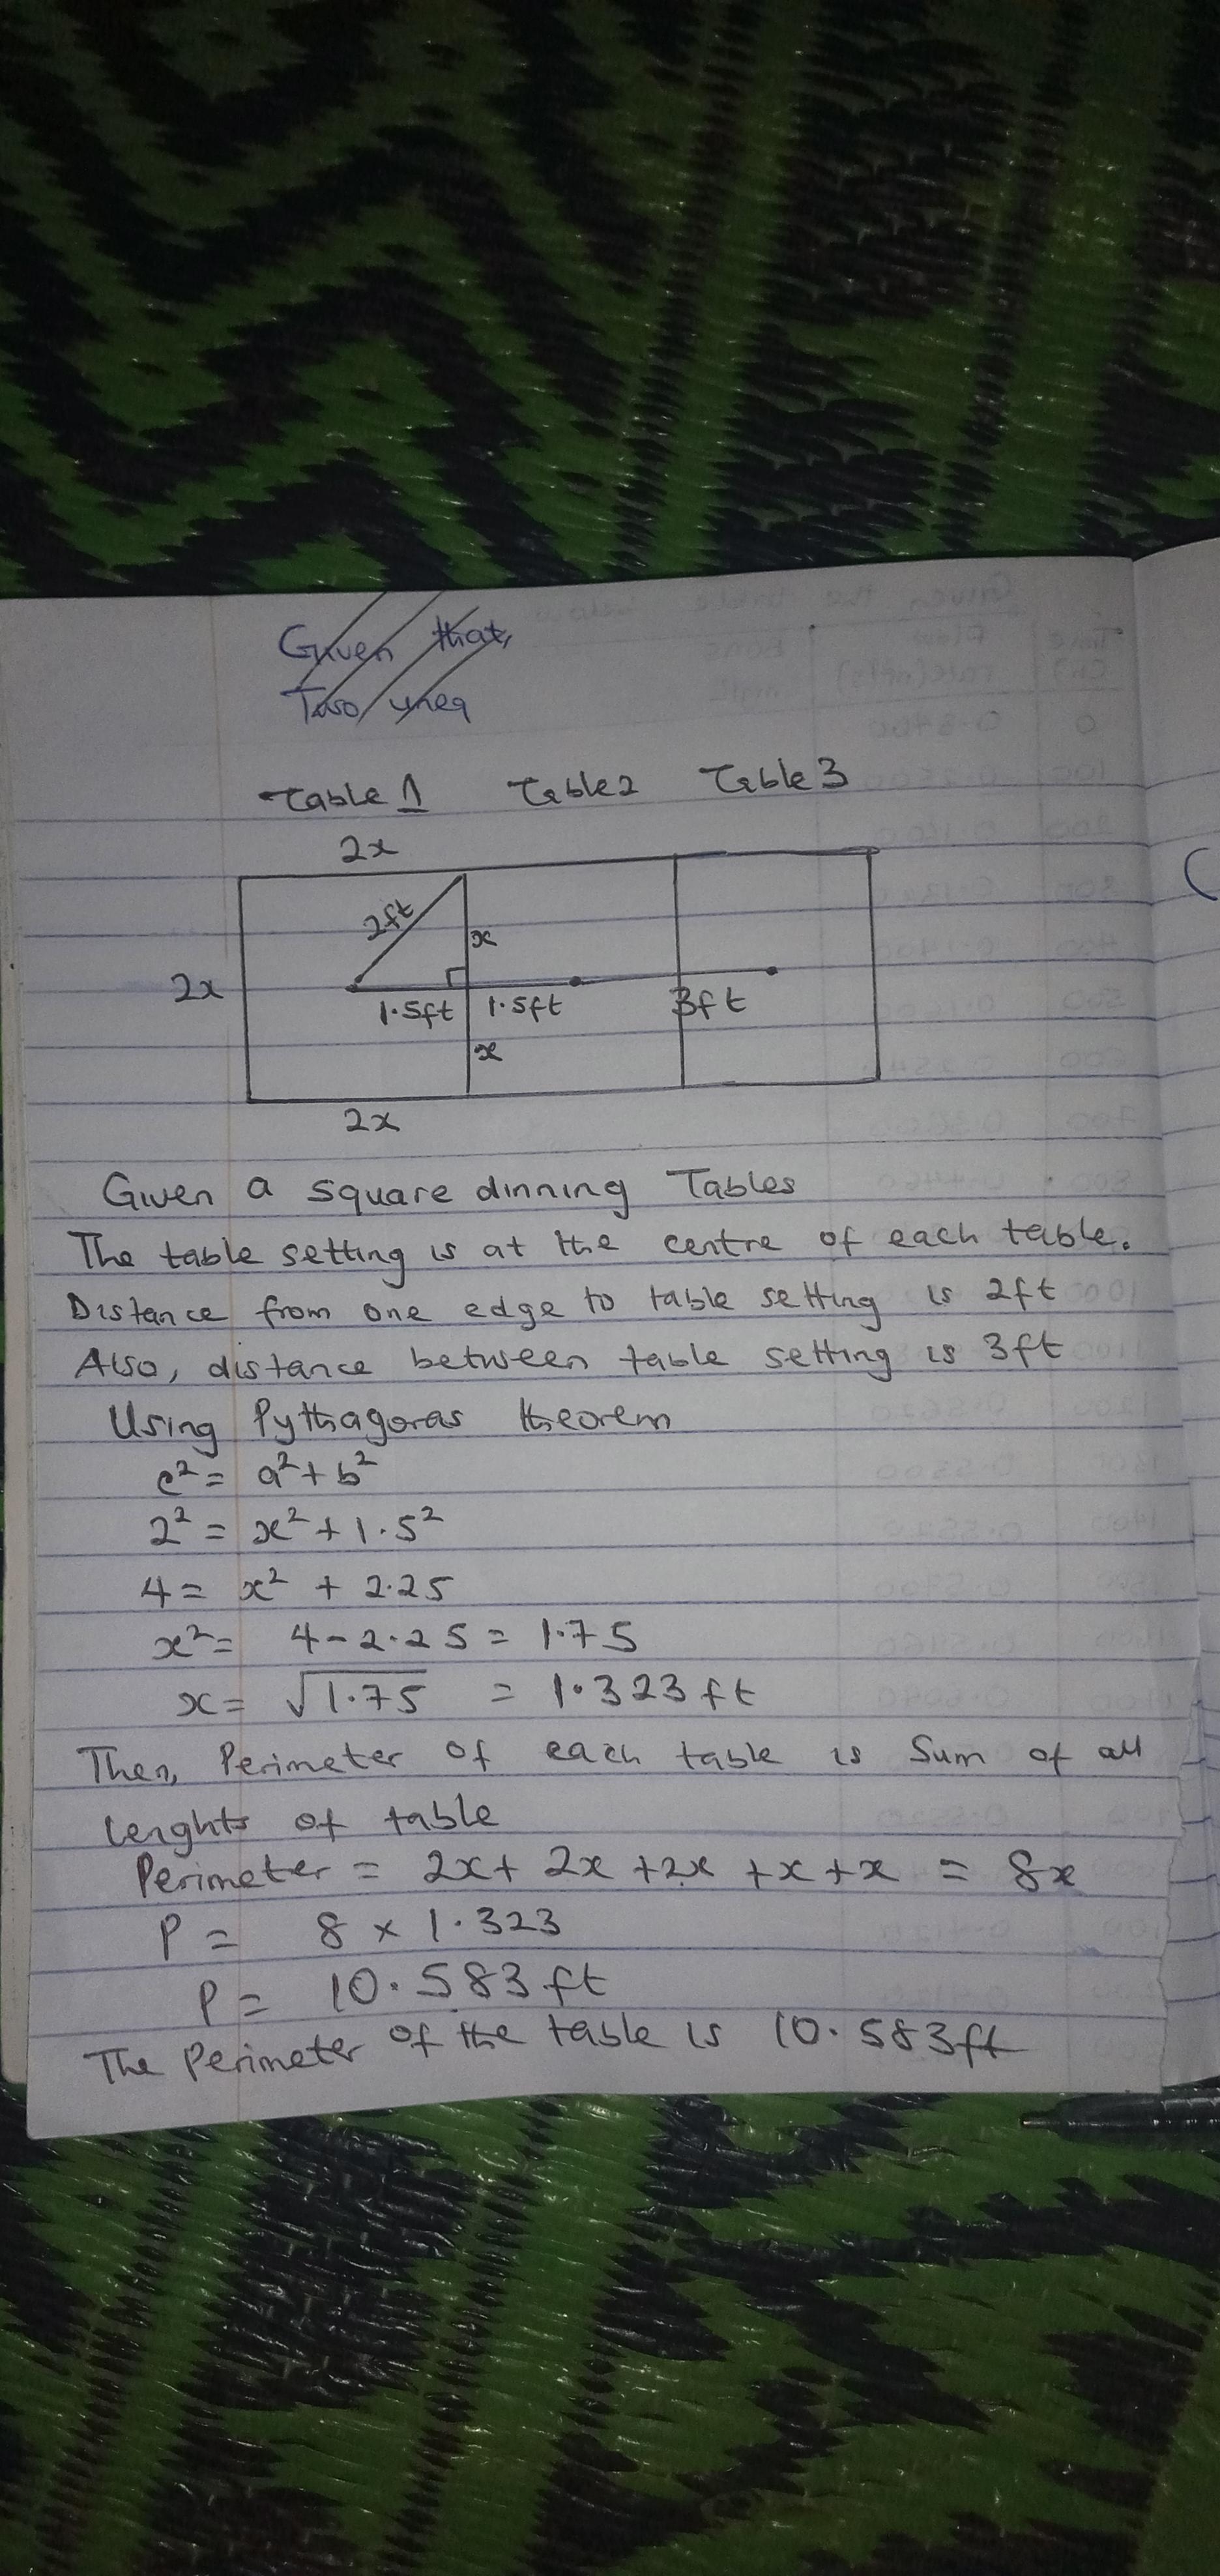 Given that,
Two
Table 1 Table 2 Table 3
2x
2ft
x
2x
1.5ft 1.5ft 3ft
x
2x
Given a square dinning Tables
The table setting is at the centre of each table.
Distance from one edge to table setting is 2ft
Also, distance between table setting is 3ft
Using Pythagoras theorem
c² = a² + b²
2² = x² + 1.5²
4 = x² + 2.25
x² = 4 - 2.25 = 1.75
x = √1.75 = 1.323ft
Then, Perimeter of each table is Sum of all
lenghts of table
Perimeter = 2x + 2x + 2x + x + x = 8x
P = 8 × 1.323
P = 10.583ft
The Perimeter of the table is 10.583ft